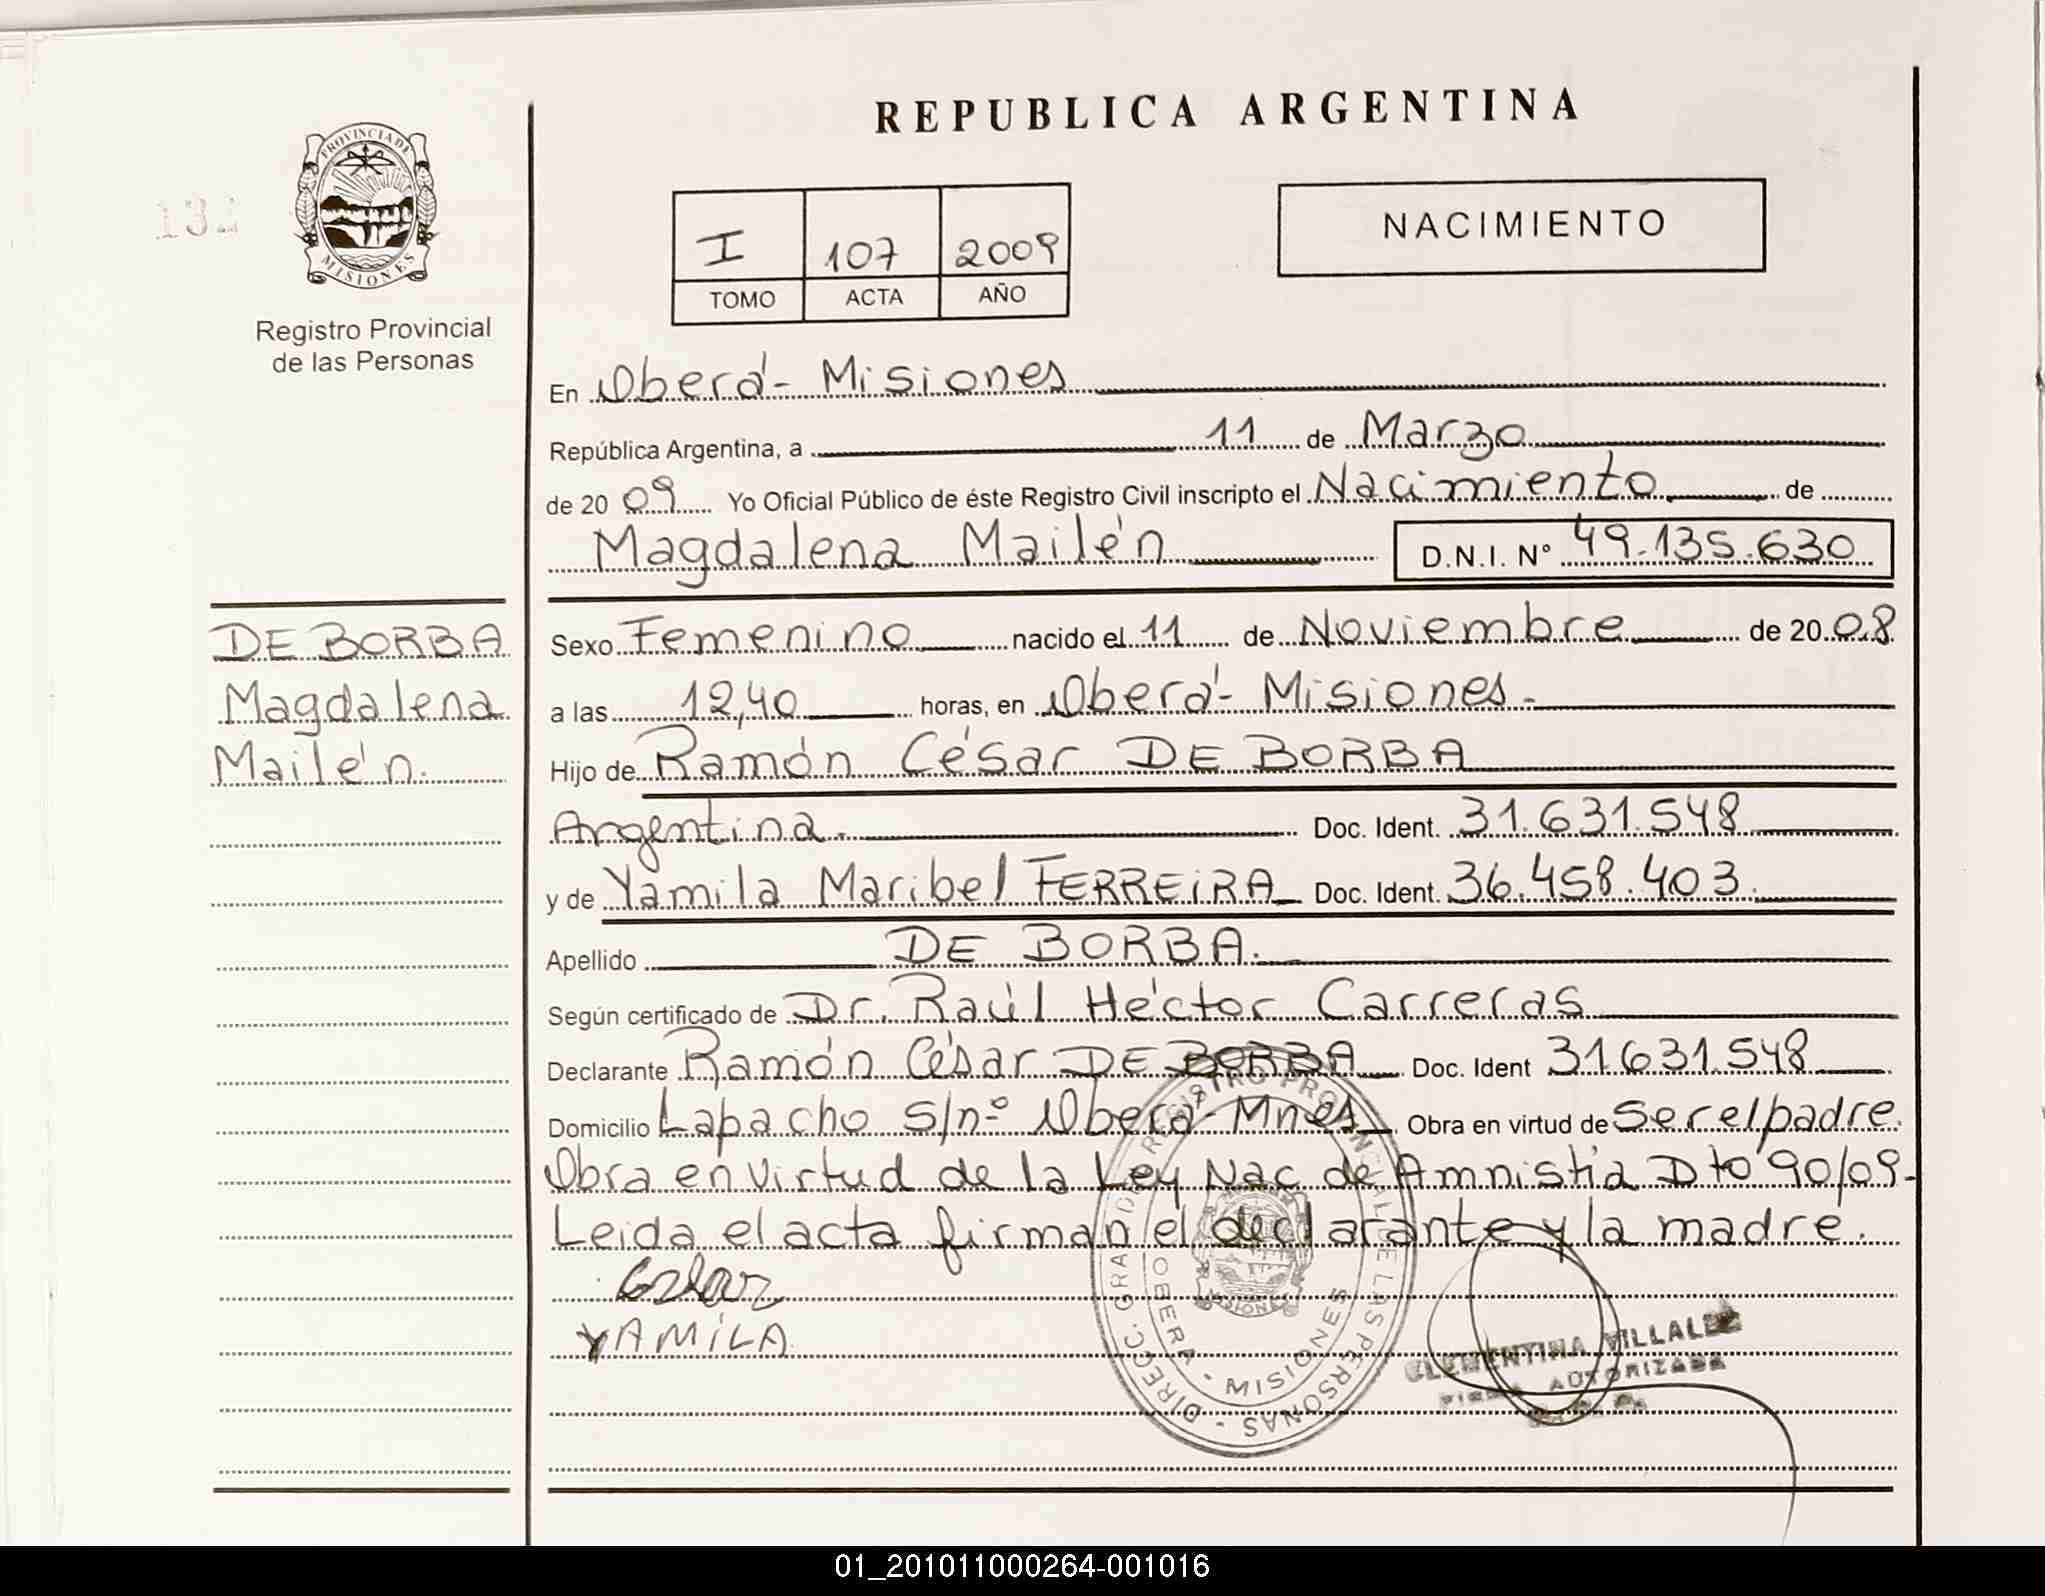 REPUBLICA ARGENTINA
PROVINCIA DE
MISIONES
Registro Provincial
de las Personas
I 107 2009
TOMO ACTA AÑO
NACIMIENTO
En Oberá - Misiones
República Argentina, a 11 de Marzo
de 2009 Yo Oficial Público de éste Registro Civil inscripto el Nacimiento de
Magdalena Mailén D.N.I. N° 49.135.630
DE BORBA
Magdalena
Mailén.
Sexo Femenino nacido el 11 de Noviembre de 2008
a las 12,40 horas, en Oberá - Misiones.
Hijo de Ramón César DE BORBA
Argentina. Doc. Ident. 31.631.548
y de Yamila Maribel FERREIRA Doc. Ident. 36.458.403.
Apellido DE BORBA.
Según certificado de Dr. Raúl Héctor Carreras
Declarante Ramón César DE BORBA Doc. Ident 31.631.548
Domicilio Lapacho S/nº Oberá - Mnes Obra en virtud de Ser el padre.
Obra en virtud de la Ley Nac de Amnistía Dto 90/09-
Leida el acta firman el declarante y la madre.
Cesar
YAMILA
DIRECC. GRAL. DE REGISTRO PROVINCIAL DE LAS PERSONAS
OBERA - MISIONES
MISIONES
CLEMENTINA
AUTORIZADA
01_201011000264-001016